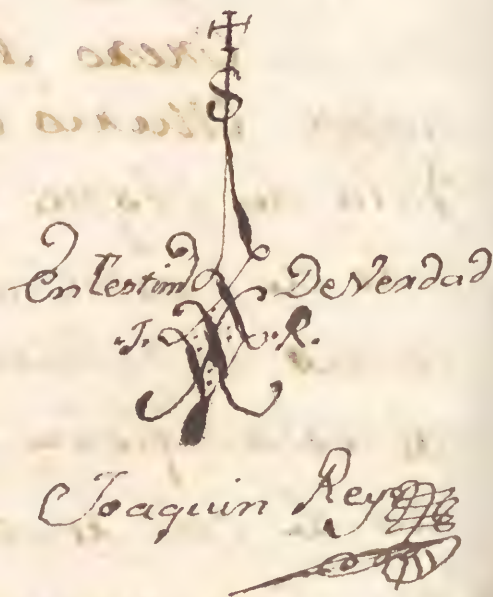 S
En Testimo De Verdad
.J. .R.
Joaquin Rey